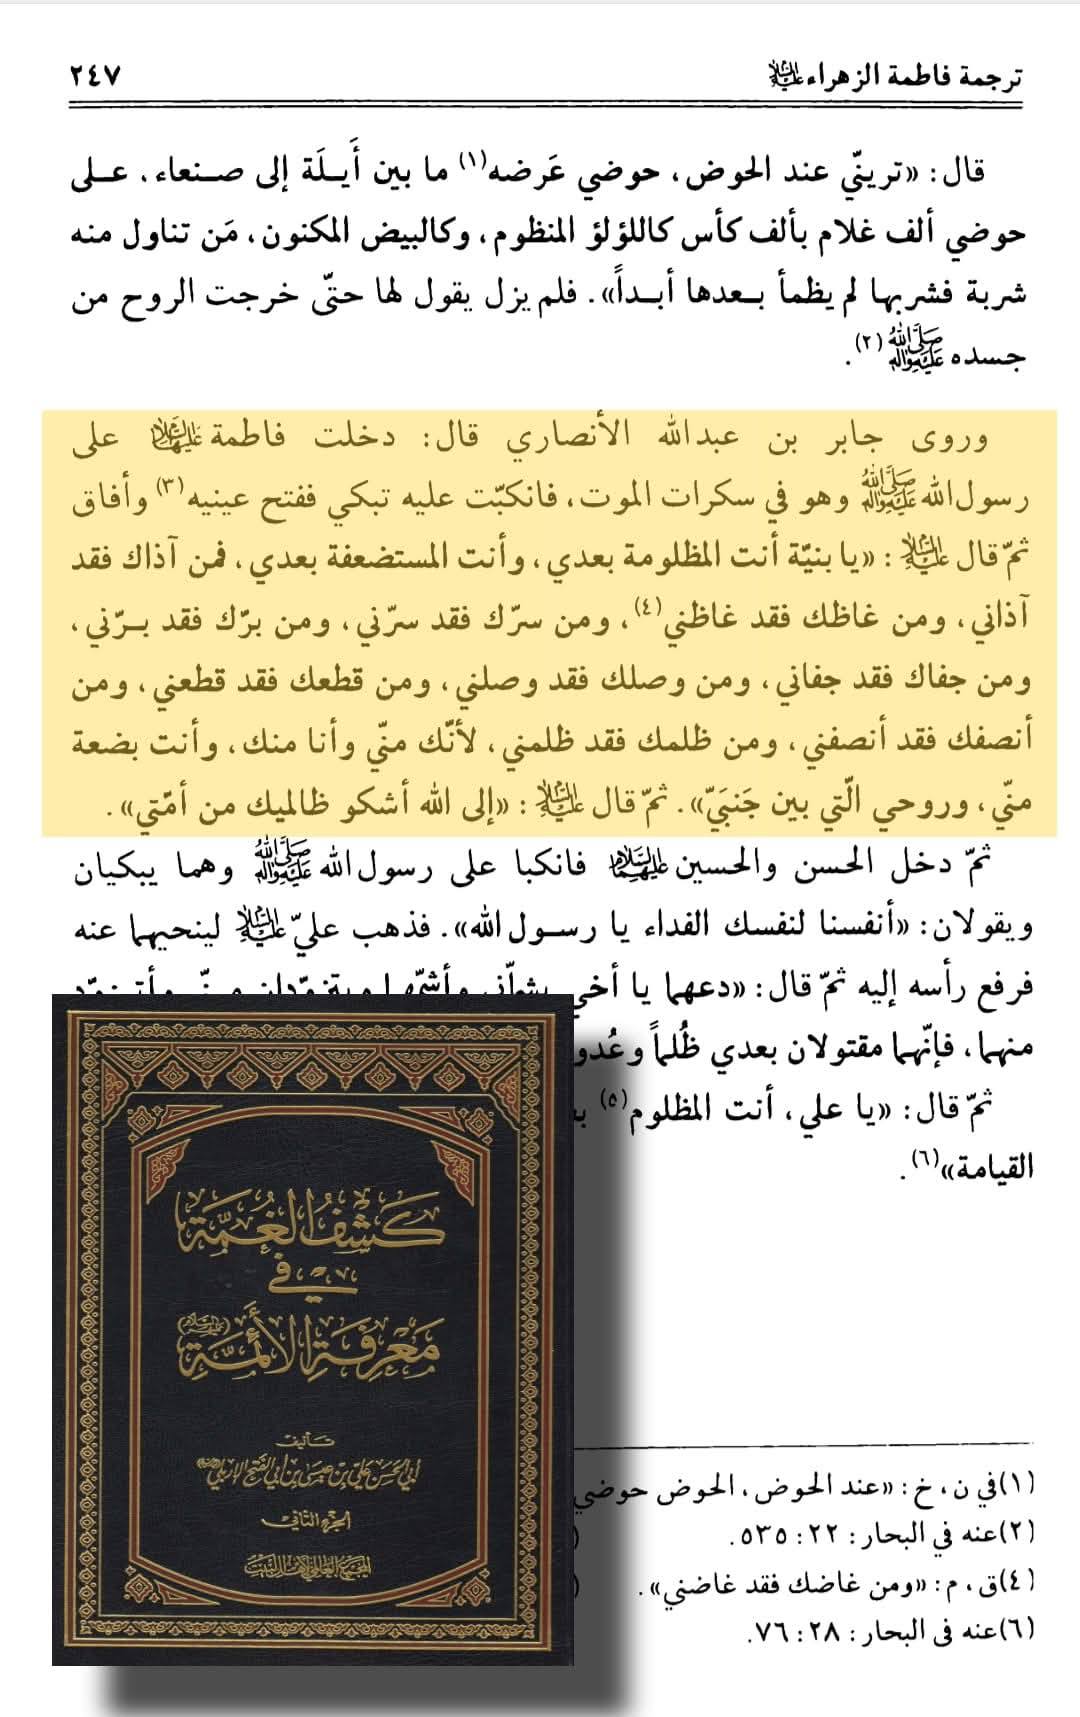 ترجمة فاطمة الزهراء عليها السلام ٢٤٧
قال: «ترينّي عند الحوض، حوضي عَرضه(١) ما بين أَيلَة إلى صنعاء، على
حوضي ألف غلام بألف كأس كاللؤلؤ المنظوم، وكالبيض المكنون، مَن تناول منه
شربة فشربها لم يظمأ بعدها أبداً». فلم يزل يقول لها حتّى خرجت الروح من
جسده صلى الله عليه وآله(٢).
وروى جابر بن عبدالله الأنصاري قال: دخلت فاطمة عليها السلام على
رسول الله صلى الله عليه وآله وهو في سكرات الموت، فانكبّت عليه تبكي ففتح عينيه(٣) وأفاق
ثمّ قال عليه السلام: «يا بنيّة أنت المظلومة بعدي، وأنت المستضعفة بعدي، فمن آذاك فقد
آذاني، ومن غاظك فقد غاظني(٤)، ومن سرّك فقد سرّني، ومن برّك فقد برّني،
ومن جفاك فقد جفاني، ومن وصلك فقد وصلني، ومن قطعك فقد قطعني، ومن
أنصفك فقد أنصفني، ومن ظلمك فقد ظلمني، لأنّك منّي وأنا منك، وأنت بضعة
منّي، وروحي الّتي بين جَنبَيّ». ثمّ قال عليه السلام: «إلى الله أشكو ظالميك من أمّتي».
ثمّ دخل الحسن والحسين عليهما السلام فانكبا على رسول الله صلى الله عليه وآله وهما يبكيان
ويقولان: «أنفسنا لنفسك الفداء يا رسول الله». فذهب عليّ عليه السلام لينحيهما عنه
فرفع رأسه إليه ثمّ قال: «دعهما يا أخي
منهما، فإنّهما مقتولان بعدي ظُلماً وعُدو
ثمّ قال: «يا علي، أنت المظلوم(٥)
القيامة»(٦).
(١) في ن، خ: «عند الحوض، الحوض حوضي
(٢) عنه في البحار: ٢٢: ٥٣٥.
(٤) ق، م: «ومن غاضك فقد غاضني».
(٦) عنه في البحار: ٢٨: ٧٦.
كَشْفُ الغُمَّة
في
مَعْرِفَةِ الأَئِمَّة
تأليف
أبي الحسن علي بن عيسى بن أبي الفتح الإربلي
الجزء الثاني
المجمع العالمي لأهل البيت